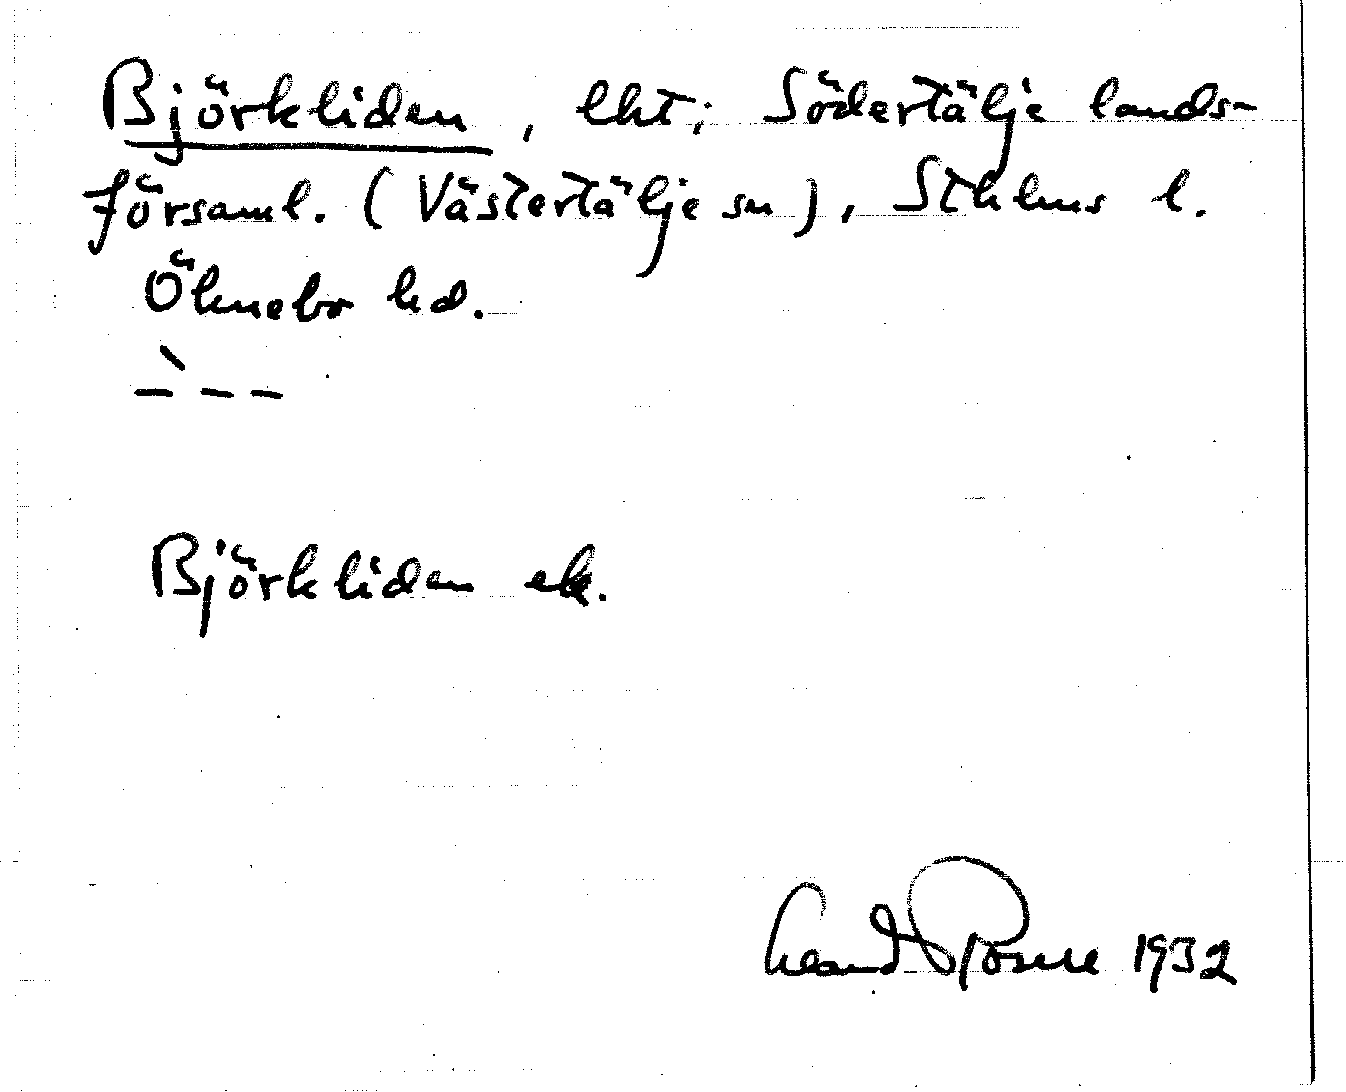 Björkliden, lht; Södertälje lands-
församl. (Västertälje sn), Sthlms l.
Öknebo hd.
Björkliden ek.
1932